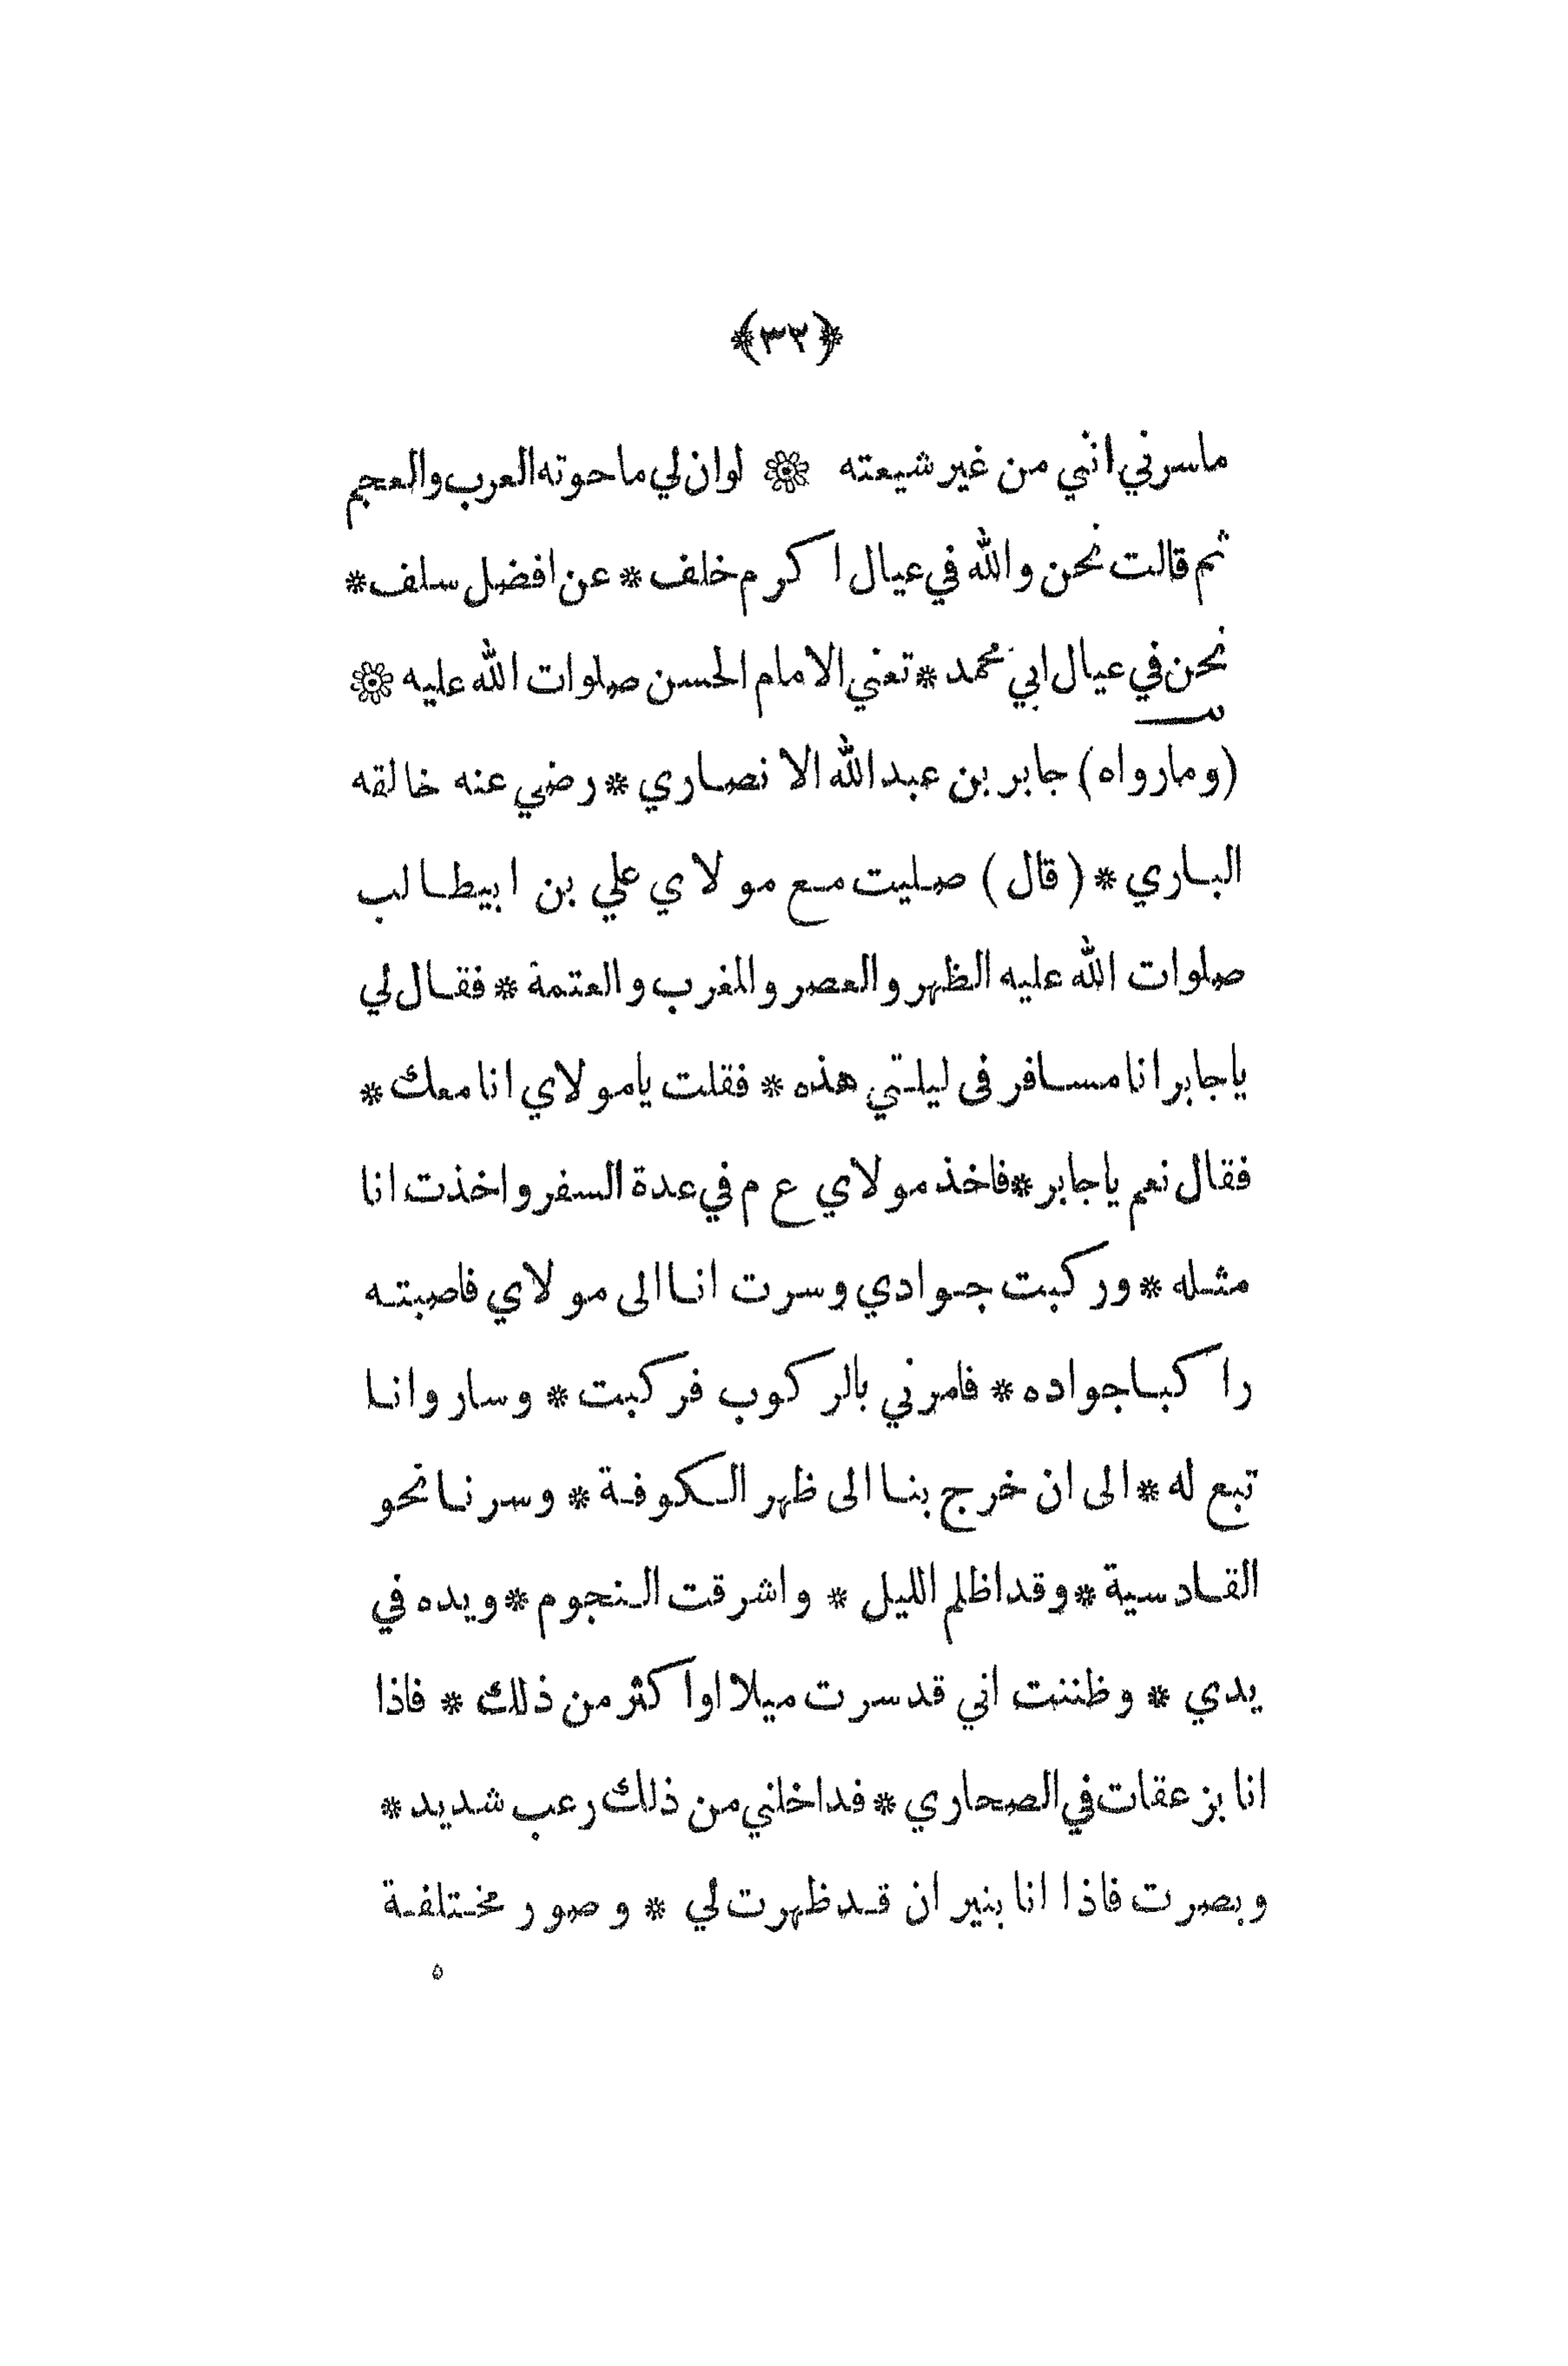 ﴿٣٣﴾
ماسرني انني من غير شيعته ۞ لو ان لي ما حوته العرب والعجم
ثم قالت نحن والله في عيال اكرم خلف * عن افضل سلف *
نحن في عيال ابي محمد * تعني الامام الحسن صلوات الله عليه ۞
(ومارواه) جابر بن عبد الله الانصاري * رضي عنه خالقه
الباري * (قال) صليت مع مولاي علي بن ابيطالب
صلوات الله عليه الظهر والعصر والمغرب والعتمة * فقال لي
ياجابر انا مسافر فى ليلتي هذه * فقلت يامولاي انا معك *
فقال نعم ياجابر * فاخذ مولاي ع م في عدة السفر واخذت انا
مثله * وركبت جوادي وسرت انا الى مولاي فاصبته
راكبا جواده * فامرني بالركوب فركبت * وسار وانا
تبع له * الى ان خرج بنا الى ظهر الكوفة * وسرنا نحو
القادسية * وقد اظلم الليل * واشرقت النجوم * ويده في
يدي * وظننت اني قد سرت ميلا او اكثر من ذلك * فاذا
انا بزعقات في الصحاري * فداخلني من ذلك رعب شديد *
وبصرت فاذا انا بنيران قد ظهرت لي * وصور مختلفة
٥